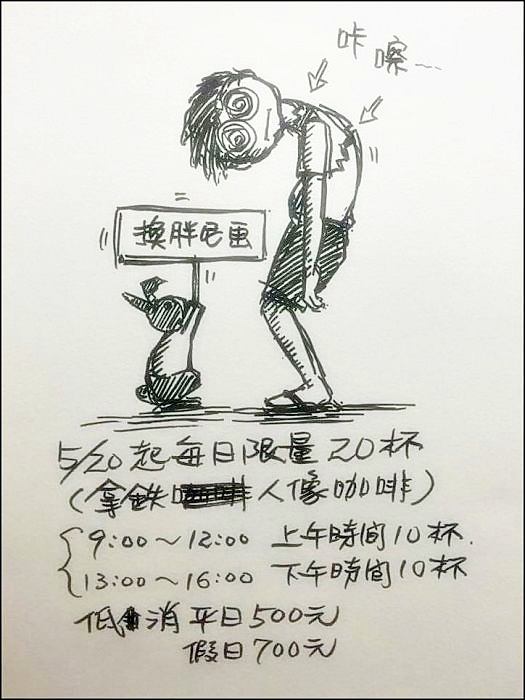 咔嚓~~
換胖尼畫
5/20起每日限量20杯
(拿鉄人像咖啡)
9:00~12:00 上午時間10杯.
13:00~16:00 下午時間10杯
低消平日500元
假日700元